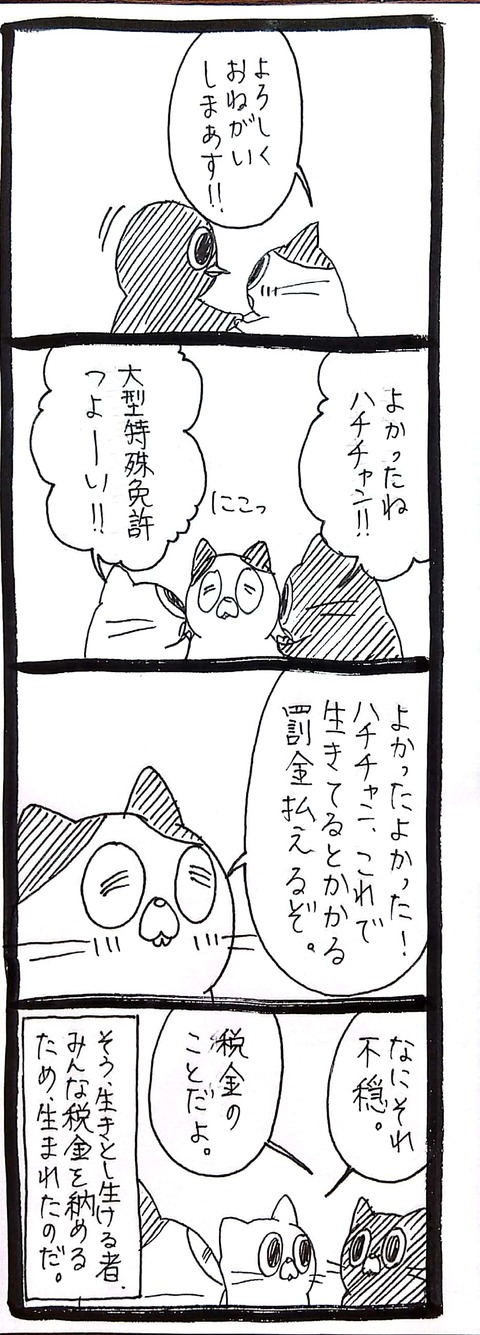 よろしく
おねがい
しまぁす!!
よかったね
ハチチャン!!
にこっ
大型特殊免許
つよーい!!
よかったよかった!
ハチチャン、これで
生きてるとかかる
罰金払えるぞ。
なにそれ
不穏。
税金の
ことだよ。
そう、生きとし生ける者、
みんな税金を納める
ため、生まれたのだ。